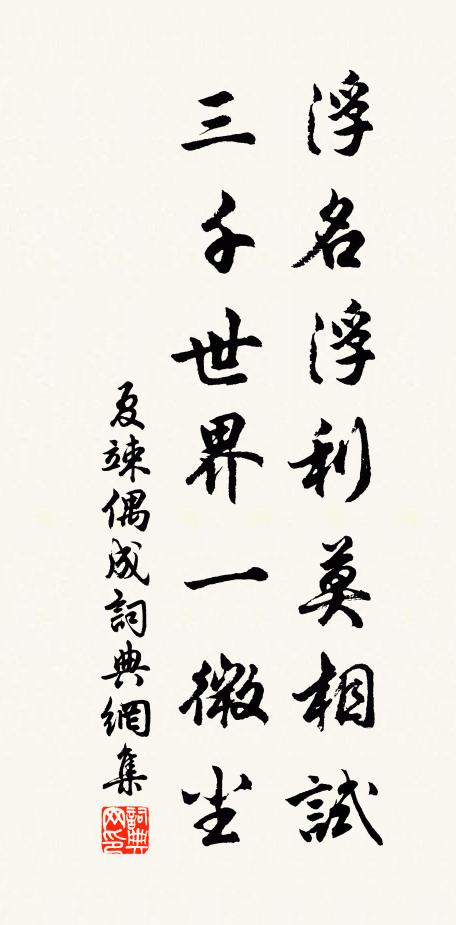 浮名浮利莫相試
三千世界一微尘
夏竦偶成詞典網集
詞典网印